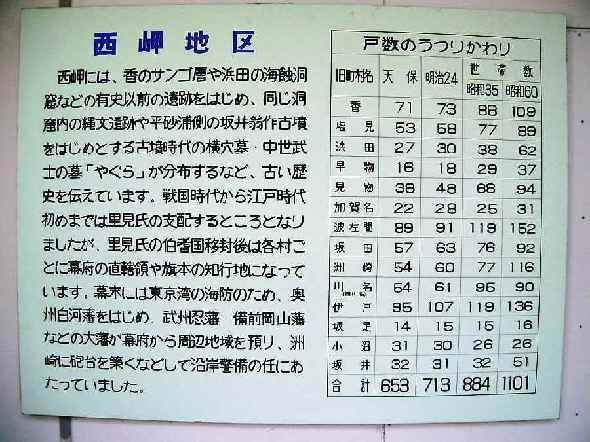 西岬地区
西岬には、香のサンゴ層や浜田の海蝕洞
窟などの有史以前の遺跡をはじめ、同じ洞
窟内の縄文遺跡や平砂浦側の坂井翁作古墳
をはじめとする古墳時代の横穴墓・中世武
士の墓「やぐら」が分布するなど、古い歴
史を伝えています。戦国時代から江戸時代
初めまでは里見氏の支配するところとなり
ましたが、里見氏の伯耆国移封後は各村ご
とに幕府の直轄領や旗本の知行地になって
います。幕末には東京湾の海防のため、奥
州白河藩をはじめ、武州忍藩 備前岡山藩
などの大藩が幕府から周辺地域を預り、洲
崎に砲台を築くなどして沿岸警備の任にあ
たっていました。
戸数のうつりかわり
旧町村名 天保 明治24 世帯数
昭和35 昭和60
香 71 73 88 109
塩見 53 58 77 89
浜田 27 30 38 62
早物 16 18 29 37
見物 38 48 68 94
加賀名 22 28 25 31
波左間 89 91 119 152
坂田 57 63 76 92
洲崎 54 60 77 116
川名 64 61 95 90
伊戸 95 107 119 136
坂足 14 15 15 16
小沼 31 30 26 26
坂井 32 31 32 51
合計 653 713 884 1101